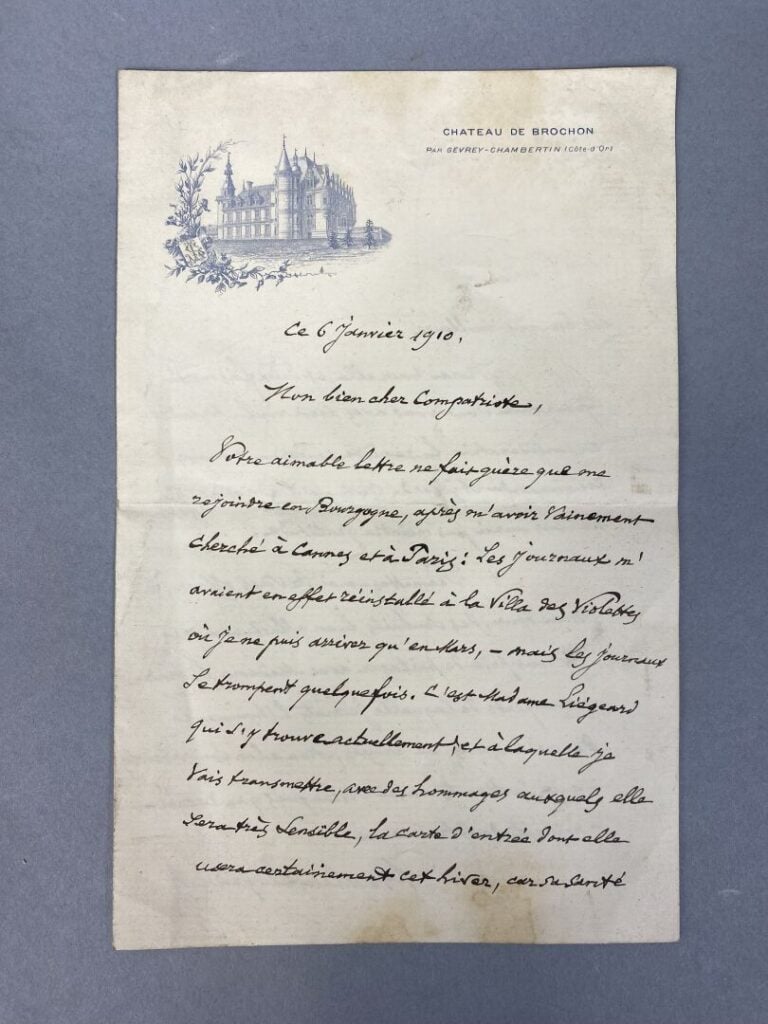 CHATEAU DE BROCHON
PAR GEVREY-CHAMBERTIN (Côte-d'Or)
Ce 6 Janvier 1910.
Mon bien cher Compatriote,
Votre aimable lettre ne fait guère que me
rejoindre en Bourgogne, après m'avoir vainement
cherché à Cannes et à Paris: Les journaux m'
avaient en effet réinstallé à la Villa des Violettes
où je ne puis arriver qu'en Mars, – mais les journaux
se trompent quelquefois. C'est Madame Liégeard
qui s'y trouve actuellement, et à laquelle je
vais transmettre, avec des hommages auxquels elle
sera très sensible, la carte d'entrée dont elle
usera certainement cet hiver, car sa santé